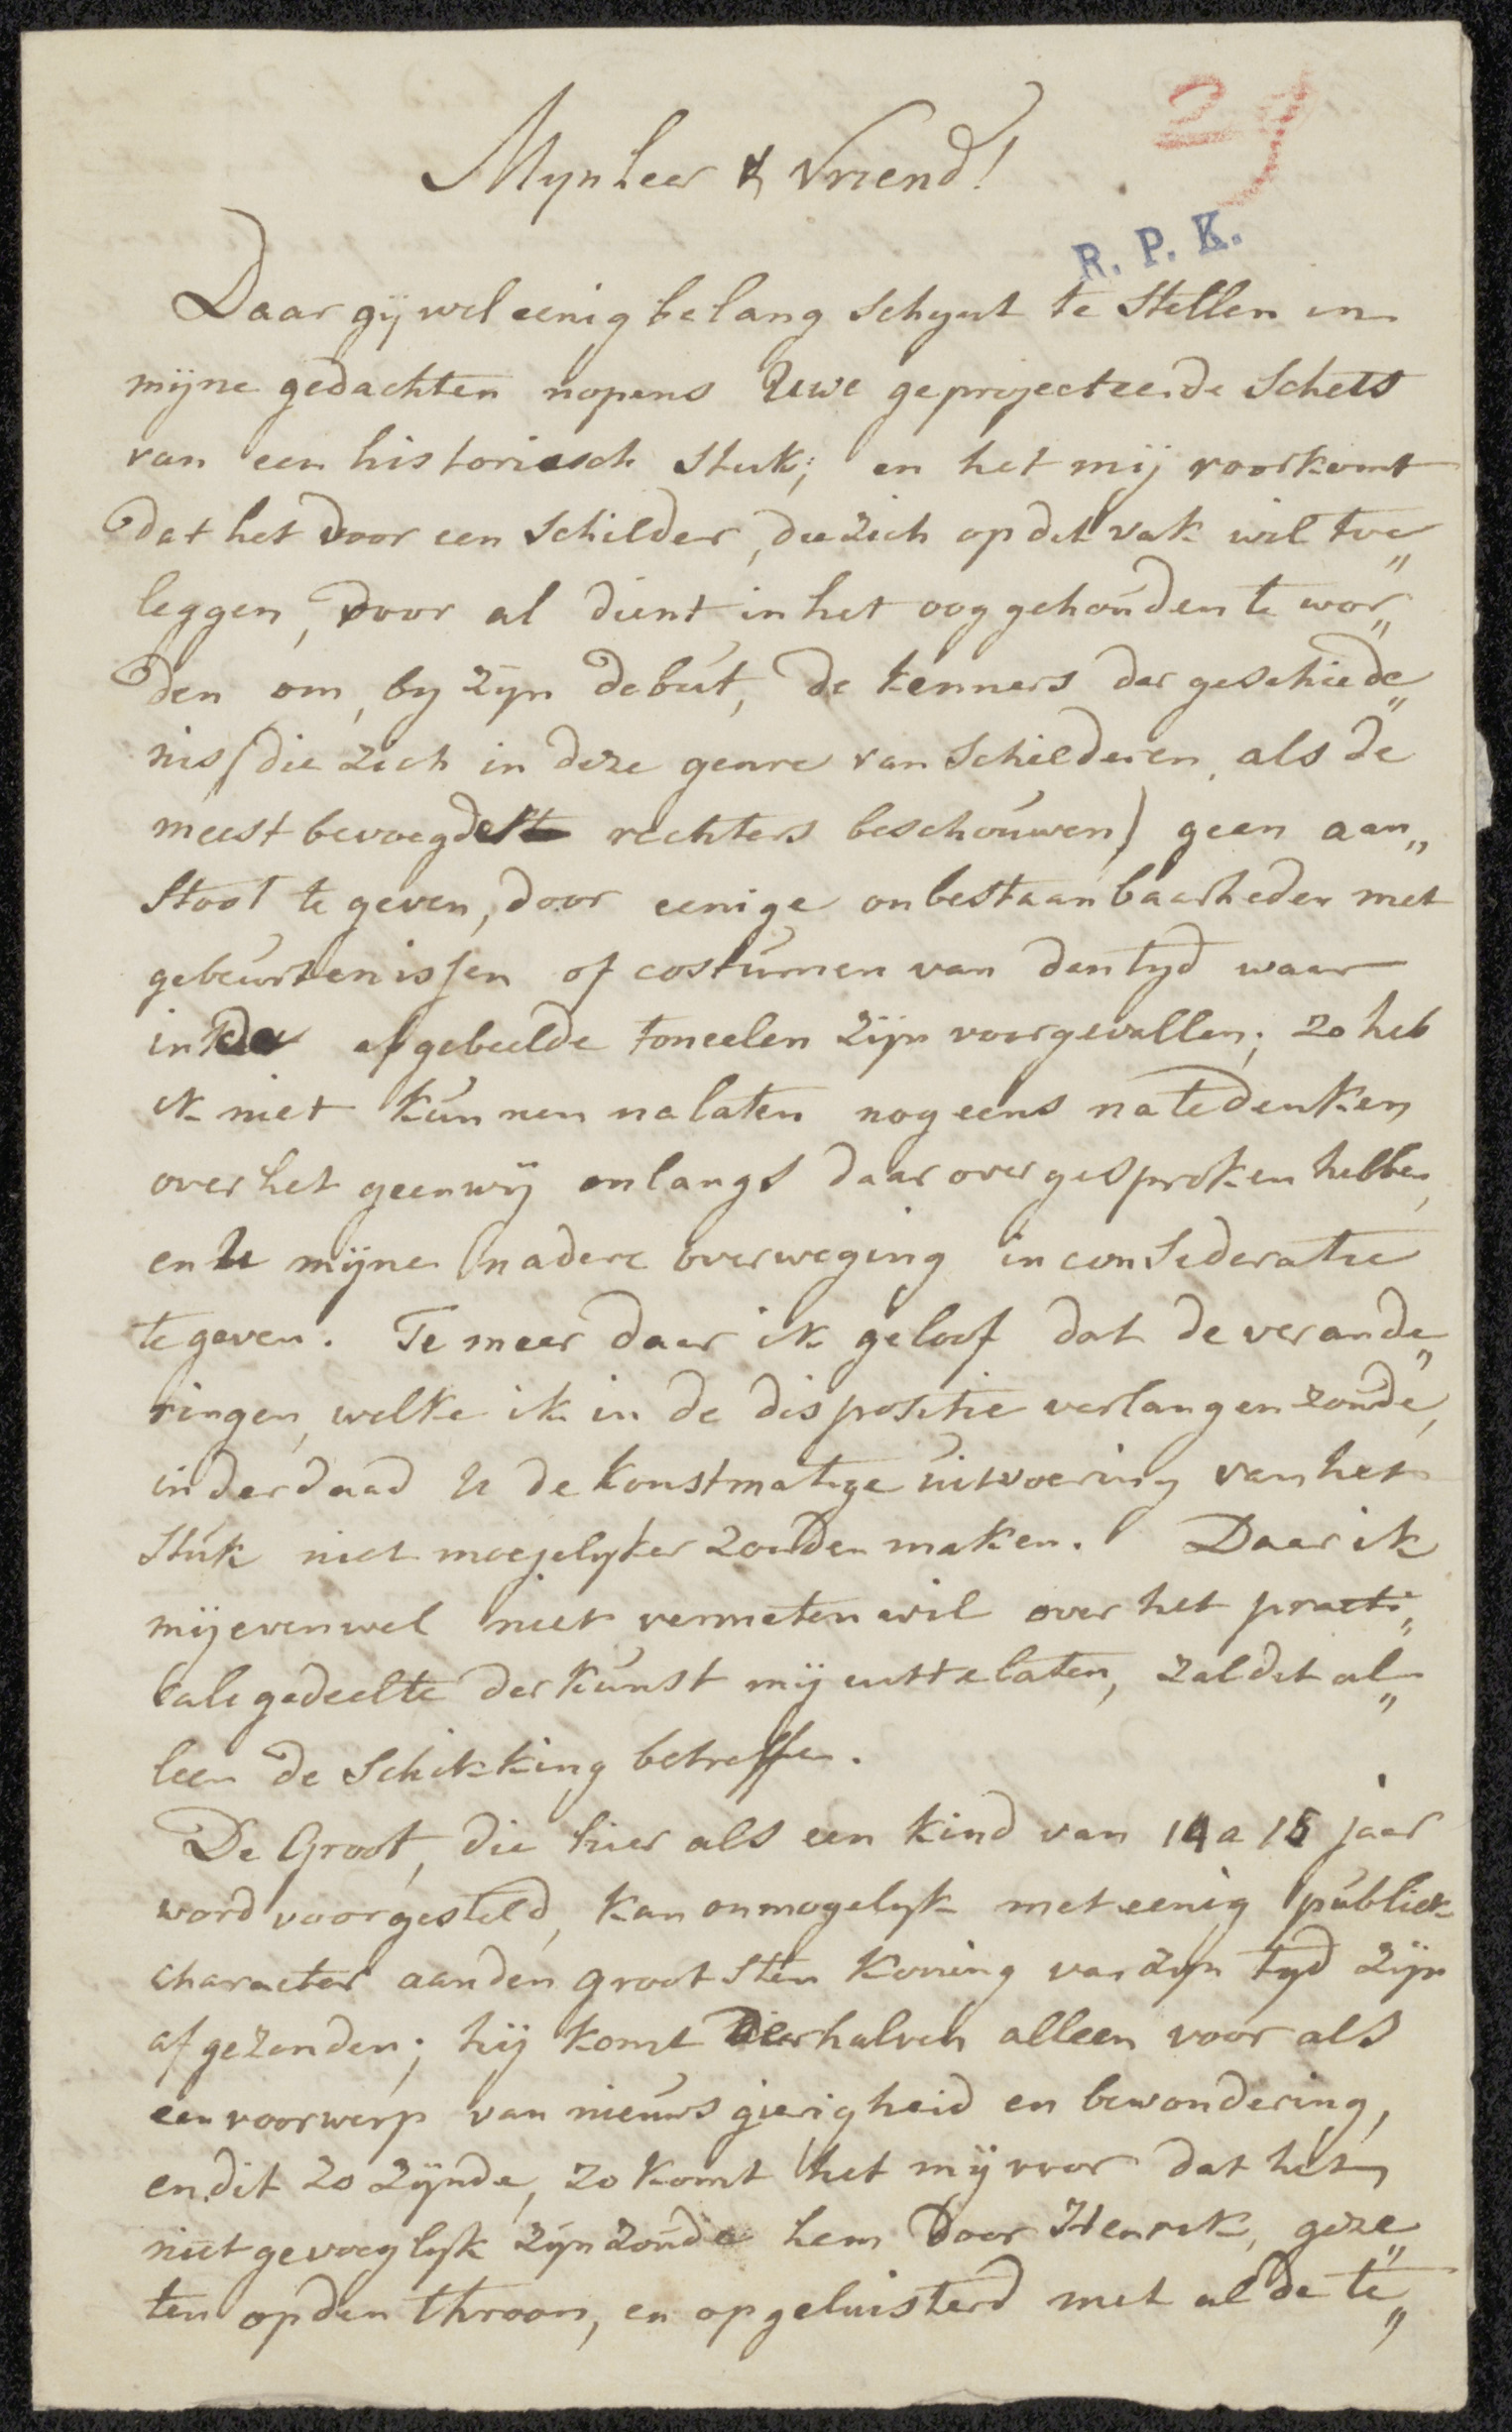 29
Mynheer & Vriend!
R. P. K.
Daar gij wel eenig belang schynt te stellen in
mijne gedachten nopens Uwe geprojecteerde Schets
van een historiesch stuk; en het mij voorkomt
dat het door een Schilder, die zich op dit vak wil toe„
leggen, voor al dient in het oog gehouden te wor„
den om, by zyn debút, de kenners der geschiede„
nis (die zich in deze genre van Schilderen, als de
meest bevoegde rechters beschoúwen) geen aan„
stoot te geven, door eenige onbestaanbaarheden met
gebeúrtenissen of costúmen van den tyd waar
in de afgebeelde toneelen zijn voorgevallen; zo heb
ik niet kúnnen nalaten nog eens na te denken
over het geen wij onlangs daar over gesproken hebben,
en U mijne nadere overweging in consideratie
te geven. Te meer daar ik geloof dat de verande„
ringen, welke ik in de dispositie verlangen zoúde,
inderdaad U de konstmatige úitvoering van het
stúk niet moejelyker zouden maken. Daar ik
mij evenwel niet vermeten wil over het practi„
cale gedeelte der kúnst mij uit te laten, zal dit al„
leen de schikking betreffen.
De Groot, die hier als een kind van 14 a 15 jaar
word voorgesteld, kan onmogelyk met eenig públiek
character aan den grootsten Koning van zyn tyd zijn
afgezonden; hij komt derhalven alleen voor als
een voorwerp van nieúwsgierigheid en bewondering,
en dit zo zÿnde, zo komt het mij voor dat het
niet gevoeglyk zyn zoúde hem door Henrik, geze„
ten op den throon, en opgeluisterd met al de te„